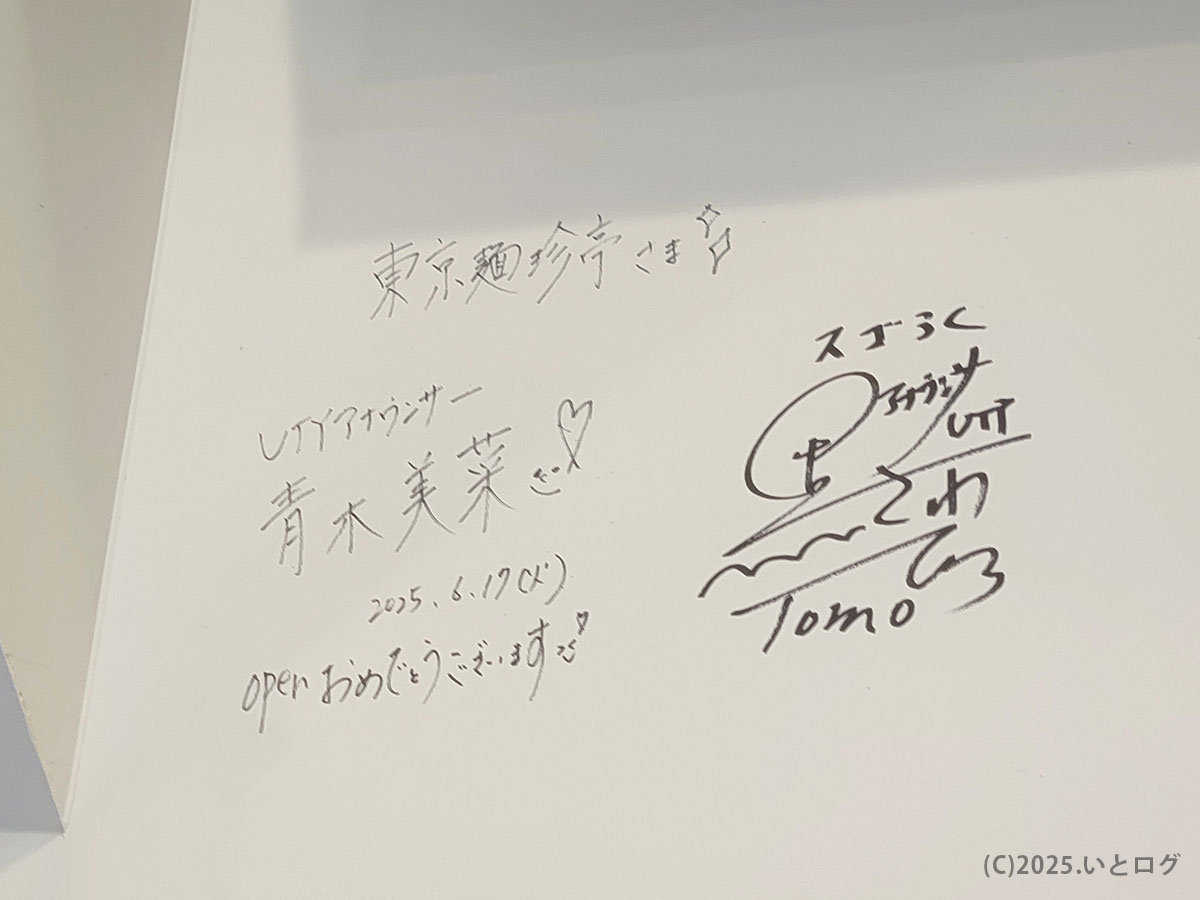 東京麺珍亭さま
UTYアナウンサー
青木美菜
2025.6.17(火)
openおめでとうございます
スゴろく
アナウンサー
UTY
Tomo
(C)2025.いとログ